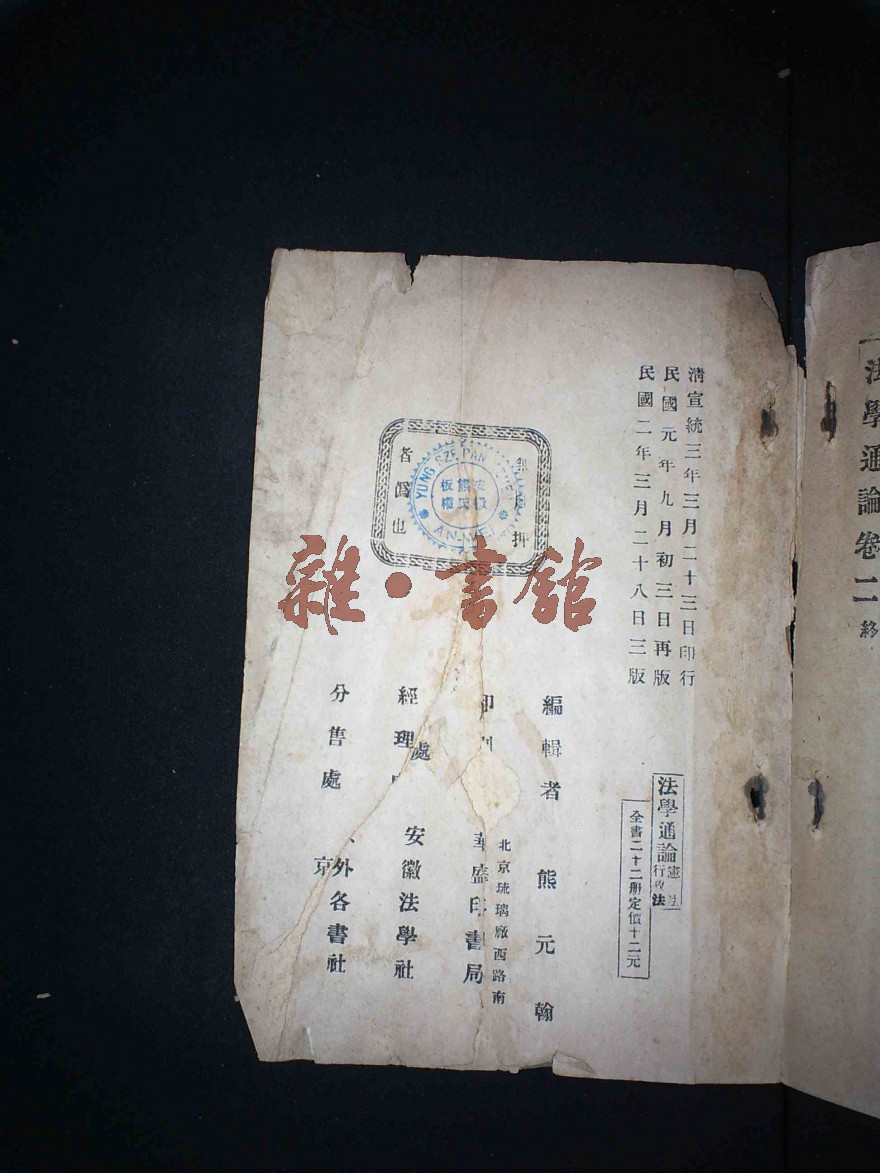 法學通論卷二終
清宣統三年三月二十三日印行
民國元年九月初三日再版
民國二年三月二十八日三版
法學通論
憲
行政法
全書二十二冊定價十二元
編輯者 熊元翰
北京琉璃廠西路南
印書局
經理處 安徽法學社
分售處 京外各書社
押
者為也
YUNG SZE PAN
熊氏
板權
AN-WEI
雜·書館